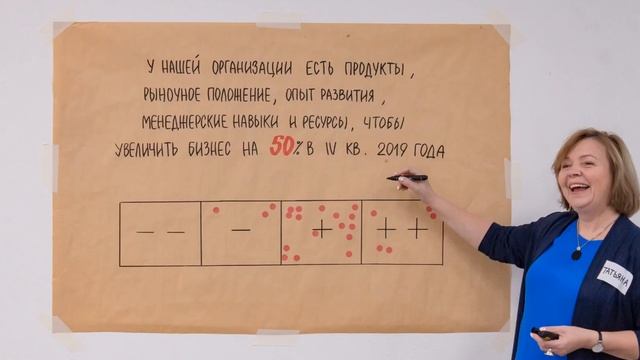 У НАШЕЙ ОРГАНИЗАЦИИ ЕСТЬ ПРОДУКТЫ,
РЫНОЧНОЕ ПОЛОЖЕНИЕ, ОПЫТ РАЗВИТИЯ,
МЕНЕДЖЕРСКИЕ НАВЫКИ И РЕСУРСЫ, ЧТОБЫ
УВЕЛИЧИТЬ БИЗНЕС НА 50% В IV КВ. 2019 ГОДА
— — — + + +
ТАТЬЯНА